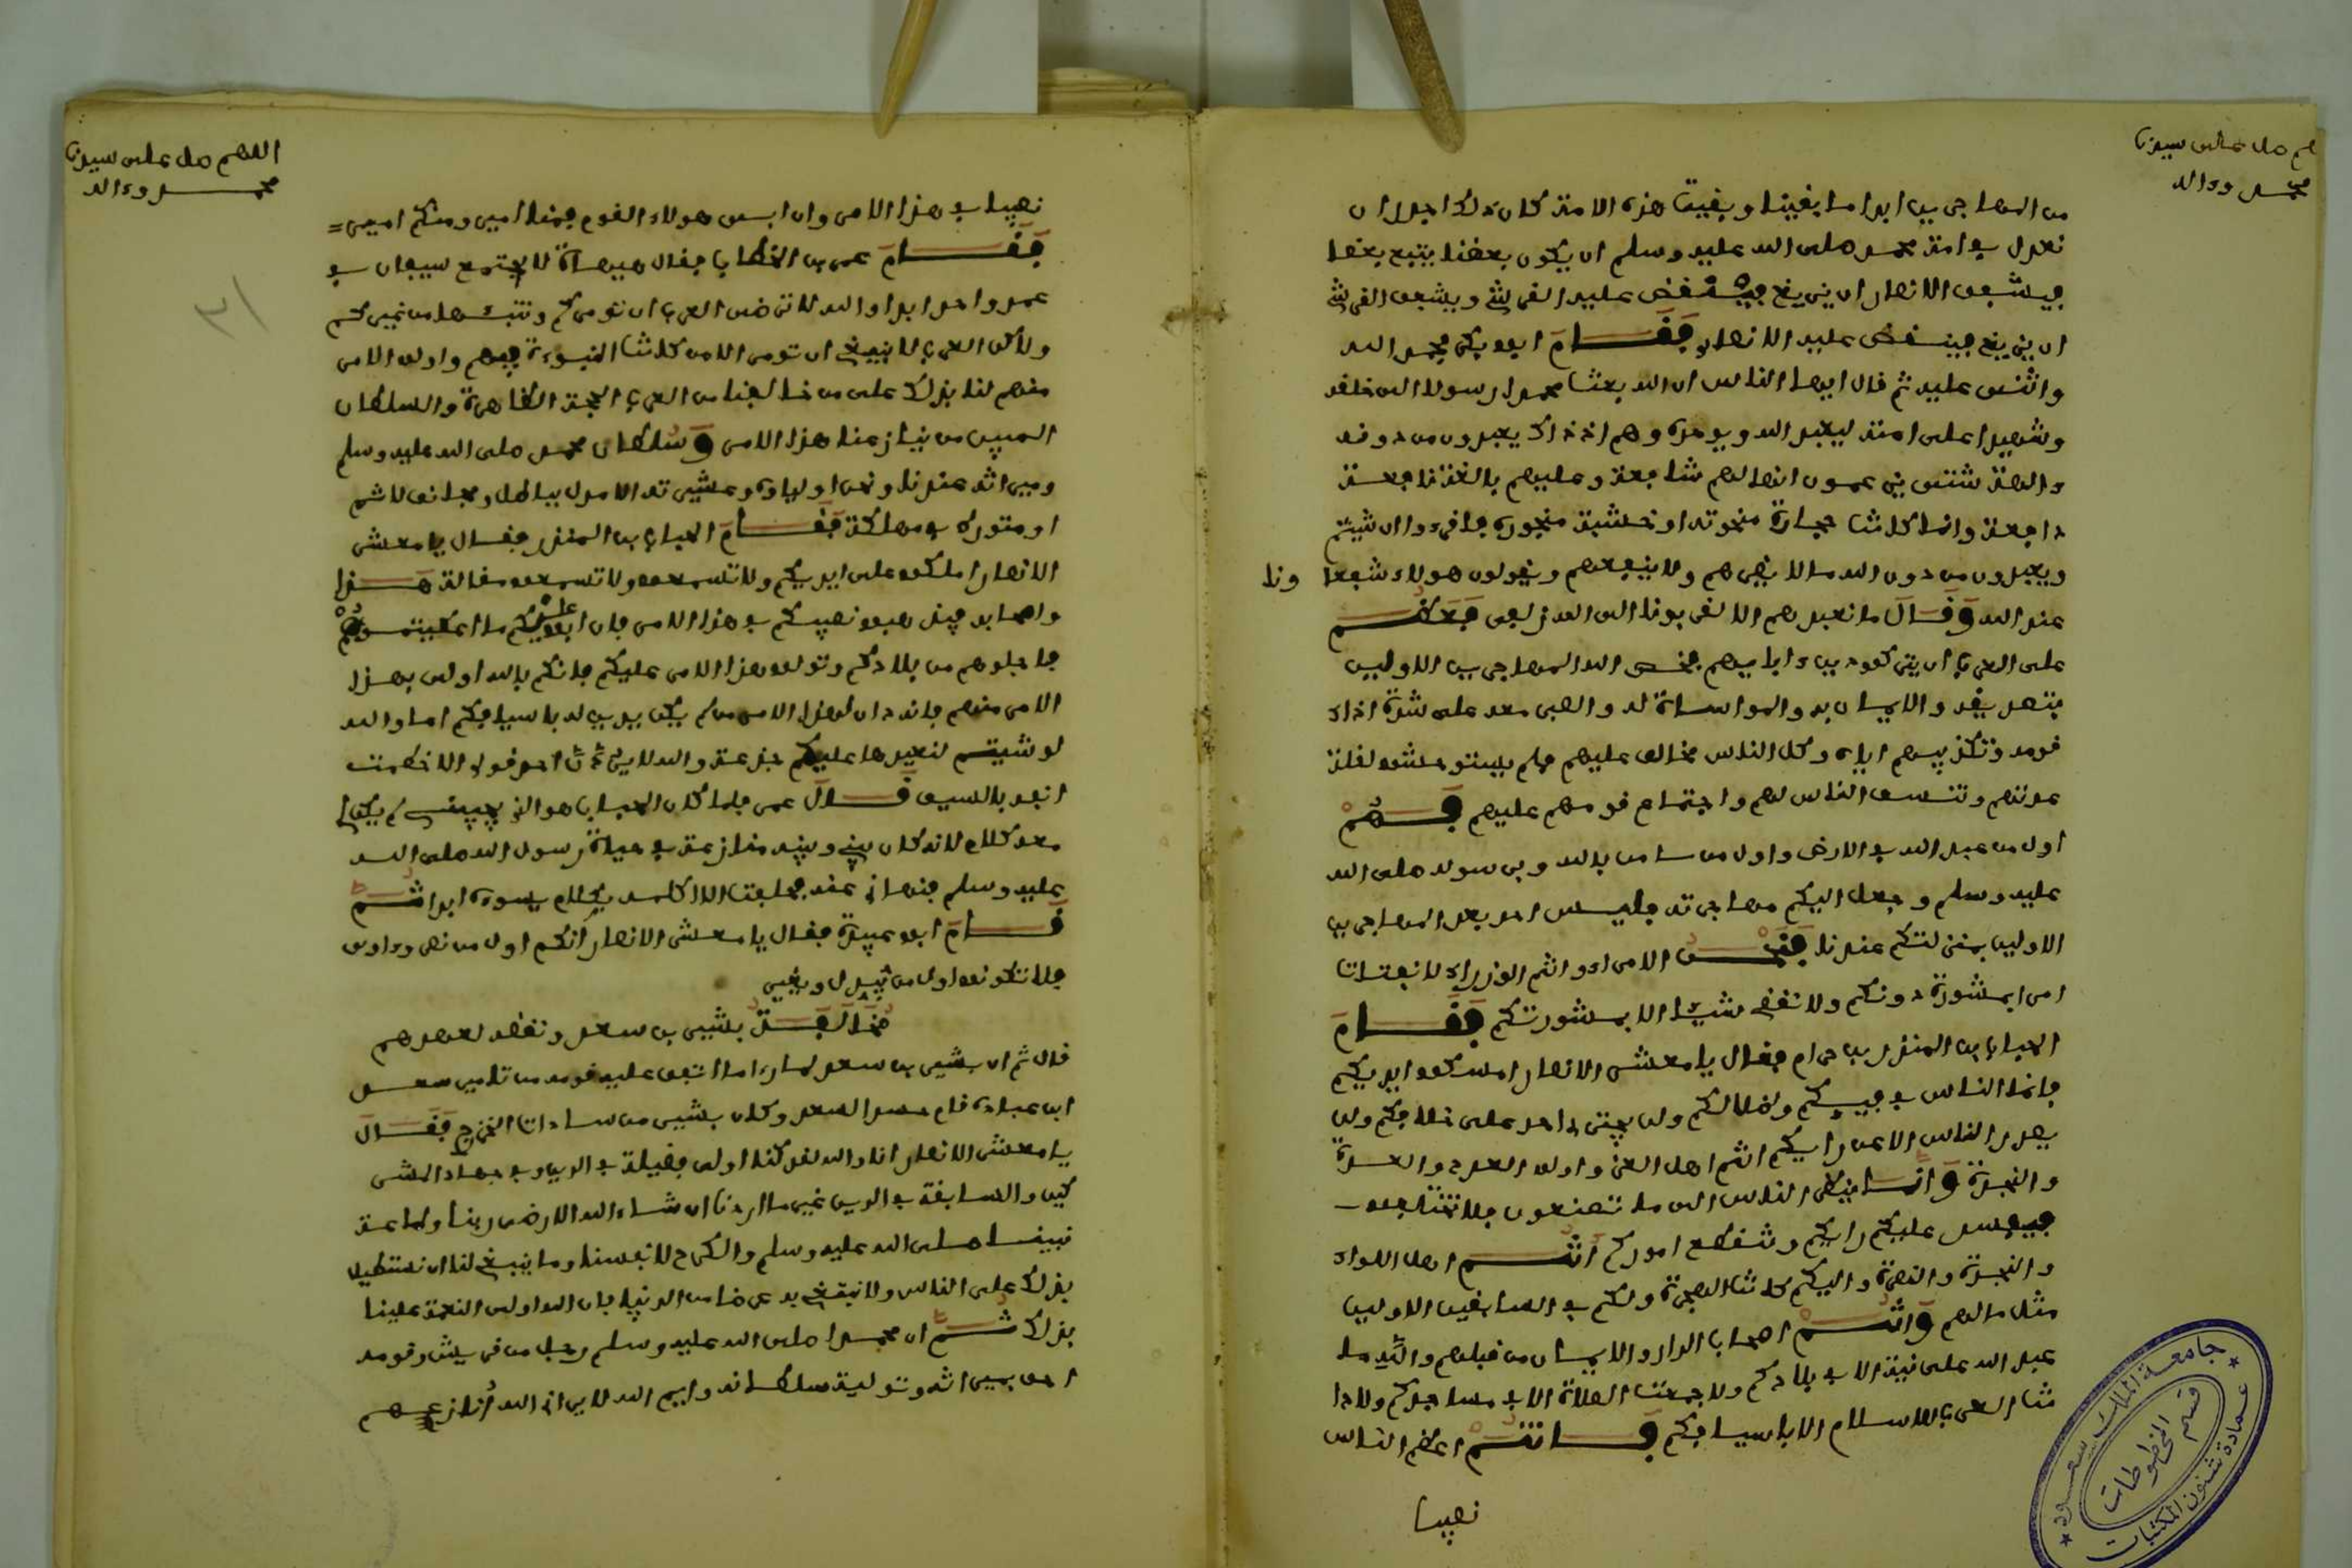 هم صل على سيدنا
محمد وءاله
من المهاجرين ابدا ما بقينا وبقيت هذه الامة كان ذلك اجدر ان
نعدل في امة محمد صلى الله عليه وسلم ان يكون بعضنا يتبع بعضا
فيشفق الانصاري ان يزيغ فينقض عليه القرشي ويشفق القرشي
ان يزيغ فينقض عليه الانصاري فقام ابو بكر فحمد الله
واثنى عليه ثم قال ايها الناس ان الله بعث محمدا رسولا الى خلقه
وشهيدا على امته ليعبد الله ويوحده وهم اذ ذاك يعبدون من دونه
ءالهة شتى يزعمون انها لهم شافعة وعليهم بالغة نافعة
وانما كانت حجارة منحوتة او خشبة منجورة فاقرءوا ان شيتم
ويعبدون من دون الله ما لا يضرهم ولا ينفعهم ويقولون هولاء شفعا ونا
عند الله وقال ما نعبدهم الا ليقربونا الى الله زلفى فعظم
على العرب ان يتركوا دين ءابايهم فخص الله المهاجرين الاولين
بتصديقه والايمان به والمواساة له والصبر معه على شدة اذاء
قومه وتكذيبهم اياه وكل الناس مخالف عليهم فلم يستوحشوا لقلة
عدتهم وتنسف الناس لهم واجتماع قومهم عليهم فهم
اول من عبد الله في الارض واول من ءامن بالله وبرسوله صلى الله
عليه وسلم وجعل اليكم مهاجرته فليس احد بعد المهاجرين
الاولين بمنزلتكم عندنا فنحن الامراء وانتم الوزراء لا نفتات
امرا بمشورة دونكم ولا نقضي شيئا الا بمشورتكم فقام
الحباب بن المنذر بن حرام فقال يا معشر الانصار امسكوا ايديكم
فانما الناس في فييكم وظلالكم ولن يجترئ احد على خلافكم ولن
يصدر الناس الا عن رأيكم انتم اهل العز واولوا العدد والعدة
والنجدة وانما ينظر الناس الى ما تصنعون فلا تختلفوا
فيفسد عليكم رأيكم وتقطع اموركم انتم اهل الايواء
والنجدة والنصرة واليكم كانت الهجرة ولكم في السابقين الاولين
مثل ما لهم وانتم اصحاب الدار والايمان من قبلهم والله ما
عبد الله علانية الا في بلادكم ولا جمعت الصلاة الا في مساجدكم ولا دا
نت العرب للاسلام الا باسيافكم فانتم اعظم الناس
نصيبا
جامعة الملك سعود
قسم المخطوطات
عمادة شئون المكتبات
اللهم صل على سيدنا
محمد وءاله
نصيبا في هذا الامر وان ابى هولاء القوم فمنا امير ومنكم امير
فقام عمر بن الخطاب فقال هيهات لا يجتمع سيفان في
غمد واحد ابدا والله لا ترضى العرب ان تومركم ونبيها من غيركم
ولاكن العرب لا ينبغي ان تومر الا من كانت النبوءة فيهم واولى الامر
منهم لنا بذلك على من خالفنا من العرب الحجة الظاهرة والسلطان
المبين من ينازعنا هذا الامر وسلطان محمد صلى الله عليه وسلم
وميراثه عندنا ونحن اولياوه وعشيرته الا مدل بباطل ومجانف لاثم
او متورك في مهلكة فقام الحباب بن المنذر فقال يا معشر
الانصار املكوا على ايديكم ولا تسمعوا مقالة هذا
واصحابه فيذهبوا نصيبكم في هذا الامر فان ابوا عليكم ما اعطيتموهم
فاجلوهم من بلادكم وتولوا هذا الامر عليكم فانكم بالله اولى بهذا
الامر منهم فانه دان لهذا الامر من لم يكن يدين له باسيافكم اما والله
لو شيتم لنعيدها عليكم جذعة والله لا يرد احد قولي الا خطمت
انفه بالسيف قال عمر فلما كان الحباب هو الذي يجيبني لم يكن لي
معه كلام لانه كان بيني وبينه منازعة في حياة رسول الله صلى الله
عليه وسلم فنهاني عنه فحلفت الا اكلمه بكلام يسوءه ابدا ثم
قام ابو عبيدة فقال يا معشر الانصار انكم اول من نصر وءاوى
فلا تكونوا اول من يبدل ويغير
مخالفة بشير بن سعد ونقضه لعهدهم
قال ثم ان بشير بن سعد لما راى ما اتفق عليه قومه من تامير سعد
ابن عبادة قام حسدا لسعد وكان بشير من سادات الخزرج فقال
يا معشر الانصار انا والله لئن كنا اولى فضيلة في الدين وفي جهاد المشر
كين والسابقة في الدين غير ما اردنا ان شاء الله الا رضى ربنا وطاعة
نبينا صلى الله عليه وسلم والكرح لانفسنا وما ينبغي لنا ان نستطيل
بذلك على الناس ولا نبتغي به عرضا من الدنيا فان الله اولى النعمة علينا
بذلك ثم ان محمدا صلى الله عليه وسلم رجل من قريش وقومه
احق بميراثه وتولية سلطانه وايم الله لا يراني الله انازعهم